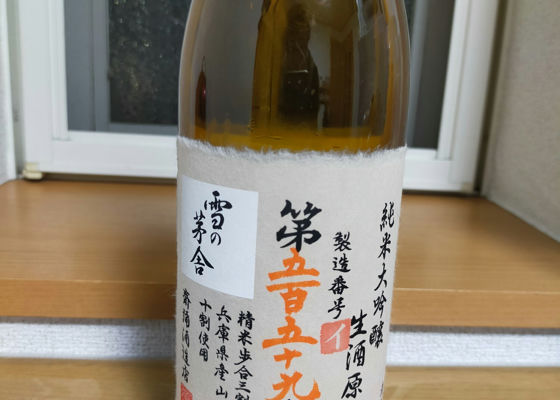 純米大吟醸
生酒原
製造番号
イ
第五百五十九
雪の
茅舎
精米歩合三割
兵庫県産山
十割使用
齋彌酒造店